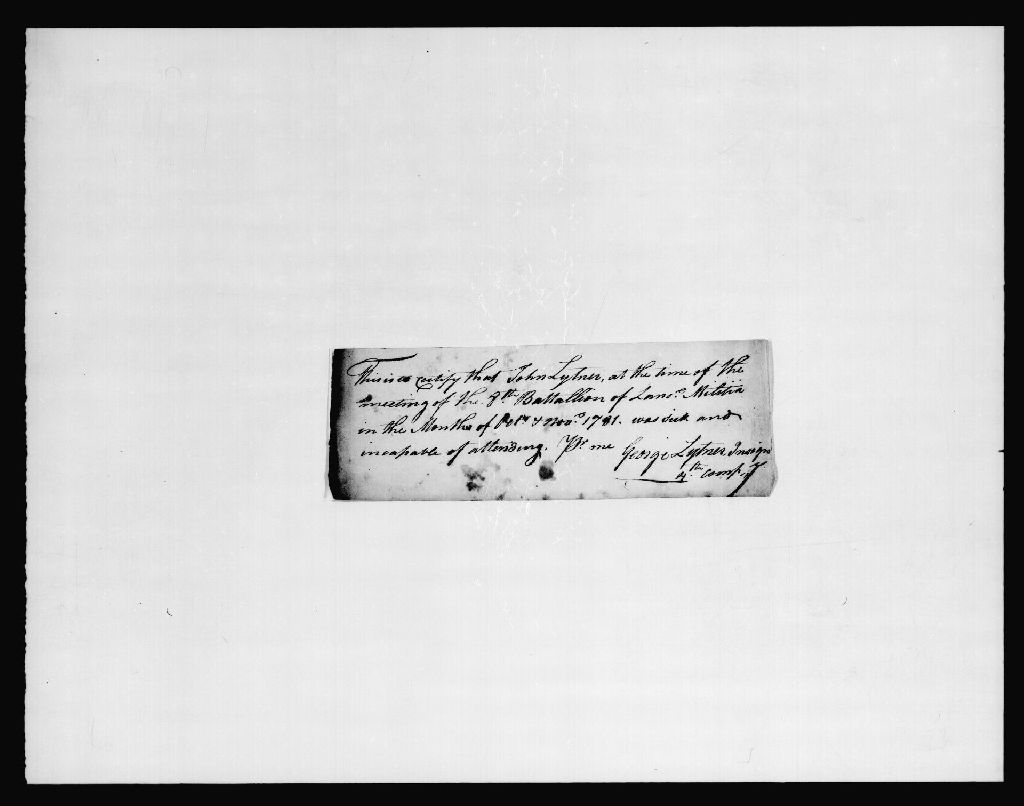 This is to certify that John Lytner, at the time of the
meeting of the 8th Battallion of Lanc.r Militia
in the Months of Oct.r & Nov.r 1781. was sick and
incapable of attending. Pr. me George Lytner Insign
4th Comp.y